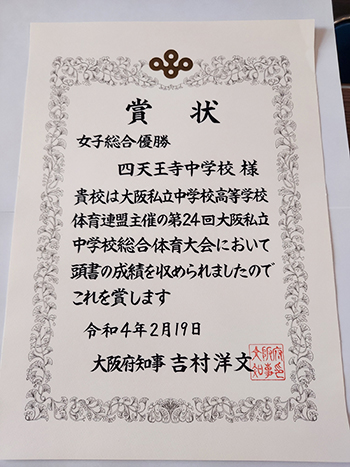 賞状
女子総合優勝
四天王寺中学校 様
貴校は大阪私立中学校高等学校
体育連盟主催の第24回大阪私立
中学校総合体育大会において
頭書の成績を収められましたので
これを賞します
令和4年2月19日
大阪府知事 吉村洋文
大阪府
知事印